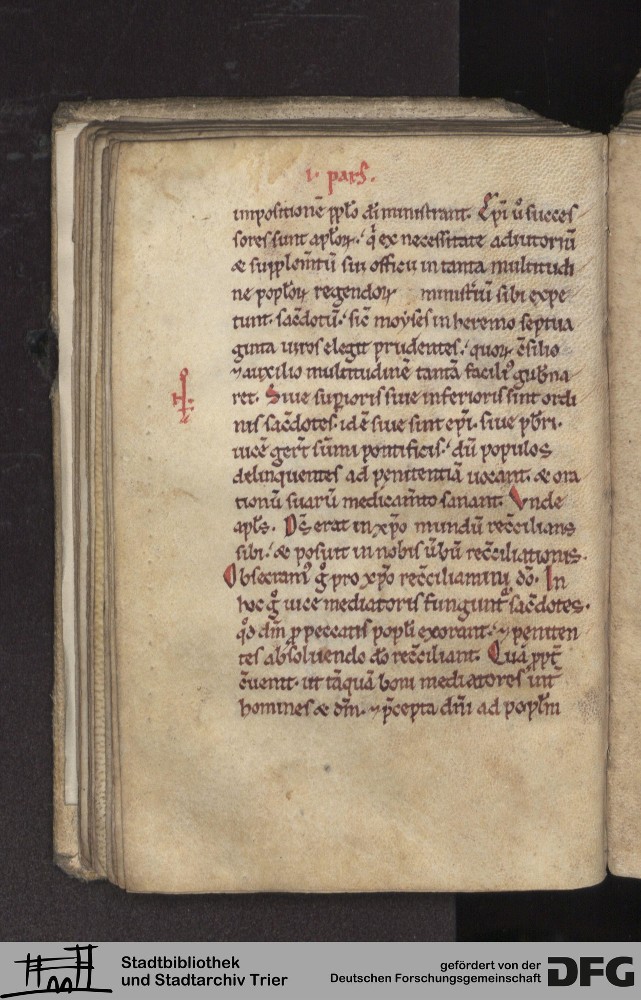 I· pars·
impositionē pp̄lo dī ministrant. Ep̄i ỷ succes
sores sunt ap̄loꝝ. q̇ ex necessitate adiutoriū
& supplem̄tū sui officii in tanta multitudi
ne populoꝝ regendoꝝ ministrū sibi expe
tunt. sac̄dotū. sic̄ moẏses in heremo septua
ginta uiros elegit prudentes. quoꝝ c̄silio
⁊ auxilio multitudinē tantā facili᷒ gub̄na
ret. Siue supioris siue inferioris sint ordi
nis sac̄dotes. id ē siue sint ep̄i. siue p̄bri.
uicē ger̄t sūmi pontificis. dū populos
delinquentes ad penitentiā uocant. & ora
tionū suarū medicam̄to sanant. Vnde
apl̄s. D̄s erat in xp̄o mundū rec̄cilians
sibi. & posuit in nobis ūbū rec̄ciliationis.
Obsecram᷒ g̊ pro xp̄o rec̄ciliamini dō. In
hoc g̊ uice mediatoris fungunt᷑ sac̄dotes.
qđ dm̄ p peccatis popl̄i exorant. ⁊ peniten
tes absoluendo dō rec̄ciliant. Quā ppt̄
c̄uenit. ut tāquā boni mediatores int̄
homines & dm̄. ⁊ p̄cepta dn̄i ad popl̄m
Stadtbibliothek
und Stadtarchiv Trier
gefördert von der
Deutschen Forschungsgemeinschaft
DFG